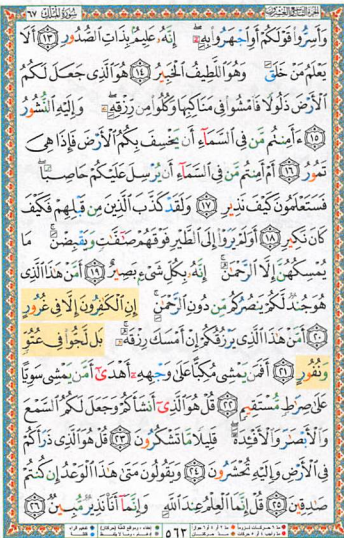 سُورَةُ المُلْكِ ٦٧
وَأَسِرُّوا۟ قَوْلَكُمْ أَوِ ٱجْهَرُوا۟ بِهِۦٓ ۖ إِنَّهُۥ عَلِيمٌۢ بِذَاتِ ٱلصُّدُورِ ١٣ أَلَا
يَعْلَمُ مَنْ خَلَقَ وَهُوَ ٱللَّطِيفُ ٱلْخَبِيرُ ١٤ هُوَ ٱلَّذِى جَعَلَ لَكُمُ
ٱلْأَرْضَ ذَلُولًا فَٱمْشُوا۟ فِى مَنَاكِبِهَا وَكُلُوا۟ مِن رِّزْقِهِۦ ۖ وَإِلَيْهِ ٱلنُّشُورُ
١٥ ءَأَمِنتُم مَّن فِى ٱلسَّمَآءِ أَن يَخْسِفَ بِكُمُ ٱلْأَرْضَ فَإِذَا هِىَ
تَمُورُ ١٦ أَمْ أَمِنتُم مَّن فِى ٱلسَّمَآءِ أَن يُرْسِلَ عَلَيْكُمْ حَاصِبًا ۖ
فَسَتَعْلَمُونَ كَيْفَ نَذِيرِ ١٧ وَلَقَدْ كَذَّبَ ٱلَّذِينَ مِن قَبْلِهِمْ فَكَيْفَ
كَانَ نَكِيرِ ١٨ أَوَلَمْ يَرَوْا۟ إِلَى ٱلطَّيْرِ فَوْقَهُمْ صَٰٓفَّٰتٍ وَيَقْبِضْنَ ۚ مَا
يُمْسِكُهُنَّ إِلَّا ٱلرَّحْمَٰنُ ۚ إِنَّهُۥ بِكُلِّ شَىْءٍۭ بَصِيرٌ ١٩ أَمَّنْ هَٰذَا ٱلَّذِى
هُوَ جُندٌ لَّكُمْ يَنصُرُكُم مِّن دُونِ ٱلرَّحْمَٰنِ ۚ إِنِ ٱلْكَٰفِرُونَ إِلَّا فِى غُرُورٍ
٢٠ أَمَّنْ هَٰذَا ٱلَّذِى يَرْزُقُكُمْ إِنْ أَمْسَكَ رِزْقَهُۥ ۚ بَل لَّجُّوا۟ فِى عُتُوٍّ
وَنُفُورٍ ٢١ أَفَمَن يَمْشِى مُكِبًّا عَلَىٰ وَجْهِهِۦٓ أَهْدَىٰٓ أَمَّن يَمْشِى سَوِيًّا
عَلَىٰ صِرَٰطٍ مُّسْتَقِيمٍ ٢٢ قُلْ هُوَ ٱلَّذِىٓ أَنشَأَكُمْ وَجَعَلَ لَكُمُ ٱلسَّمْعَ
وَٱلْأَبْصَٰرَ وَٱلْأَفْـِٔدَةَ ۖ قَلِيلًا مَّا تَشْكُرُونَ ٢٣ قُلْ هُوَ ٱلَّذِى ذَرَأَكُمْ
فِى ٱلْأَرْضِ وَإِلَيْهِ تُحْشَرُونَ ٢٤ وَيَقُولُونَ مَتَىٰ هَٰذَا ٱلْوَعْدُ إِن كُنتُمْ
صَٰدِقِينَ ٢٥ قُلْ إِنَّمَا ٱلْعِلْمُ عِندَ ٱللَّهِ وَإِنَّمَآ أَنَا۠ نَذِيرٌ مُّبِينٌ ٢٦
٥٦٣